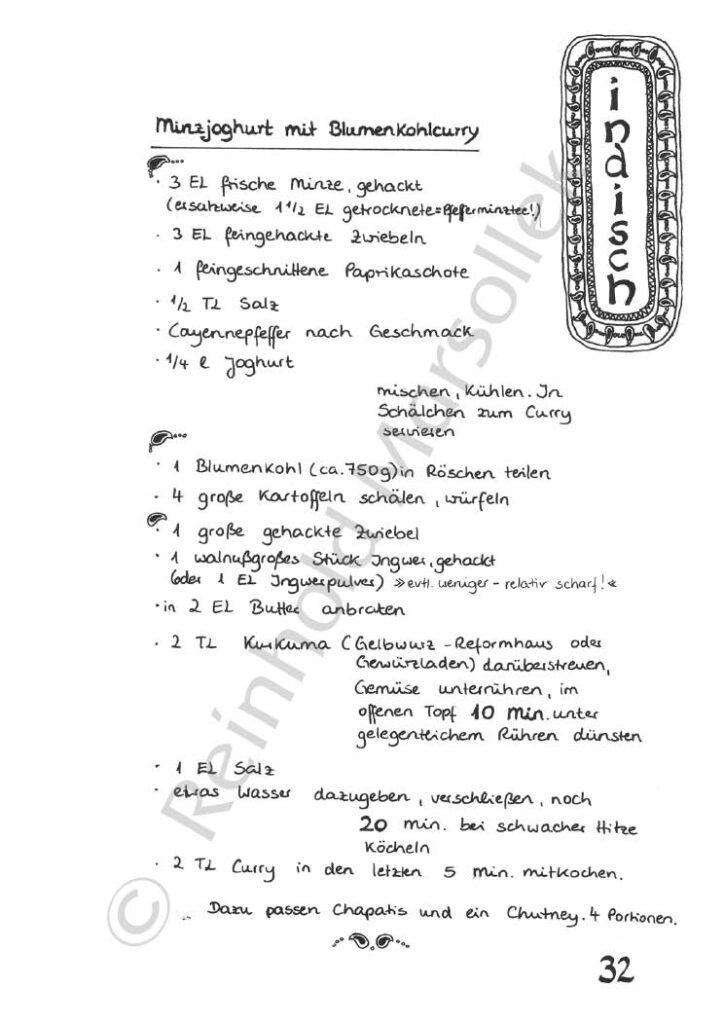 indisch
Minzjoghurt mit Blumenkohlcurry
· 3 EL frische Minze, gehackt
(ersatzweise 1 1/2 EL getrocknete = Pfefferminztee!)
· 3 EL feingehackte Zwiebeln
· 1 feingeschnittene Paprikaschote
· 1/2 TL Salz
· Cayennepfeffer nach Geschmack
· 1/4 l Joghurt
mischen, Kühlen. In
Schälchen zum Curry
servieren
· 1 Blumenkohl (ca. 750g) in Röschen teilen
· 4 große Kartoffeln schälen, würfeln
· 1 große gehackte Zwiebel
· 1 walnußgroßes Stück Ingwer, gehackt
(oder 1 EL Ingwerpulver) »evtl. weniger - relativ scharf!«
· in 2 EL Butter anbraten
· 2 TL Kurkuma (Gelbwurz - Reformhaus oder
Gewürzladen) darüberstreuen,
Gemüse unterrühren, im
offenen Topf 10 min. unter
gelegentlichem Rühren dünsten
· 1 EL Salz
· etwas Wasser dazugeben, verschließen, noch
20 min. bei schwacher Hitze
Köcheln
· 2 TL Curry in den letzten 5 min. mitkochen.
.. Dazu passen Chapatis und ein Chutney. 4 Portionen.
32
© Reinhold Marsollek